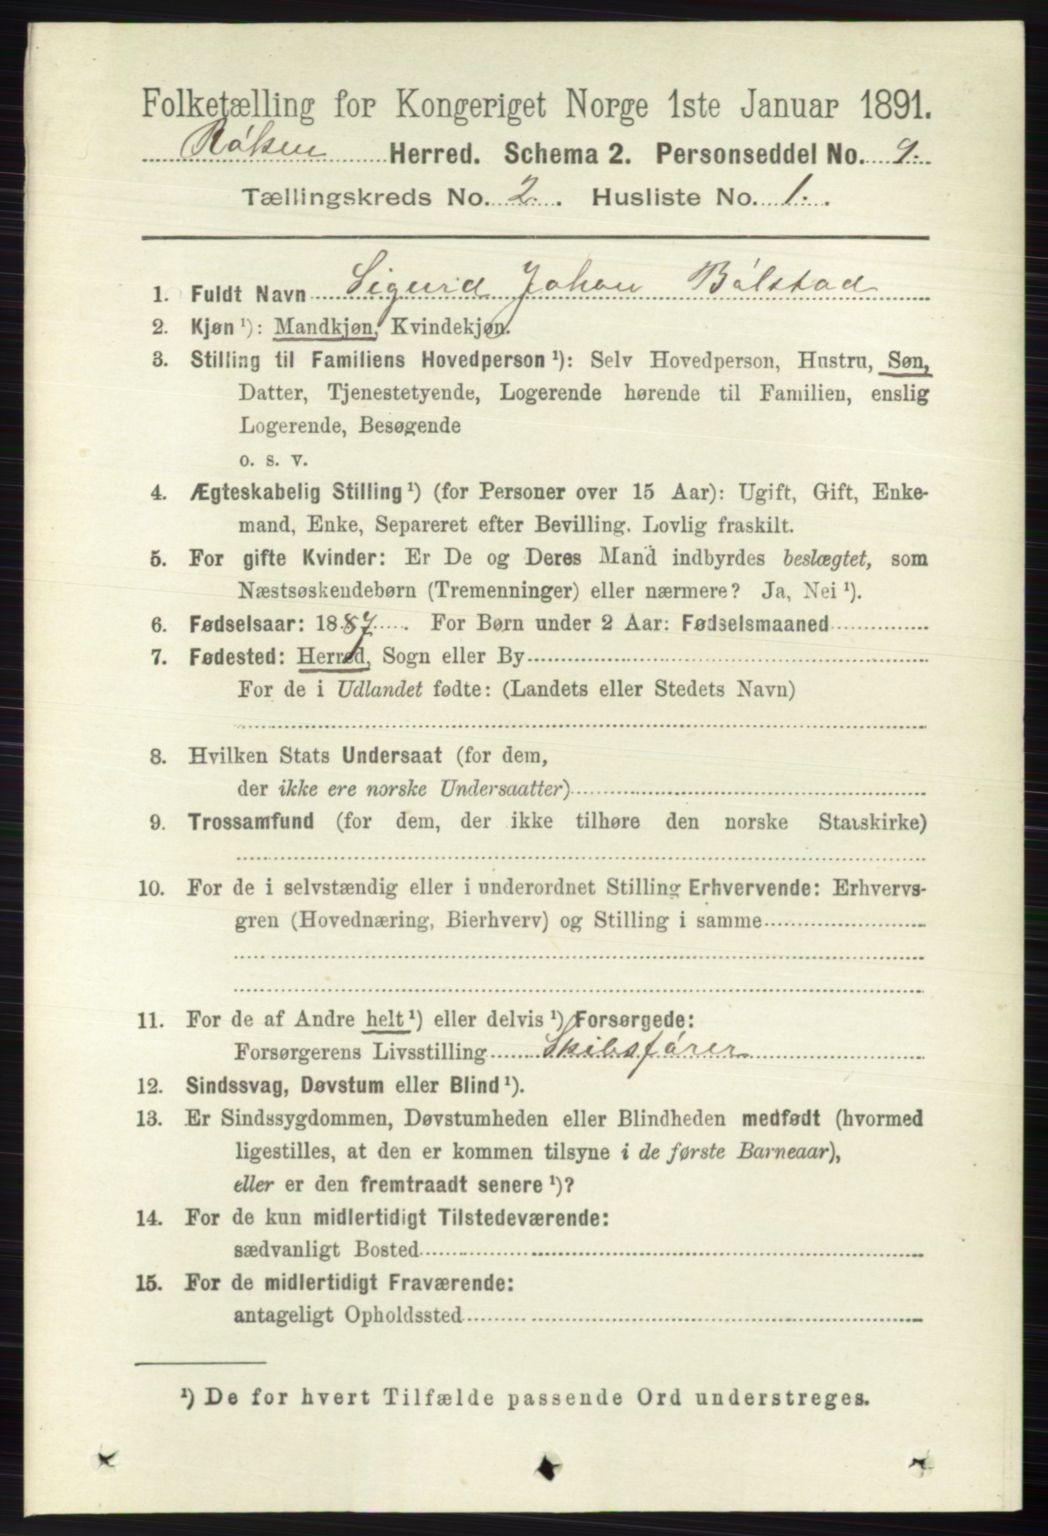 Folketælling for Kongeriget Norge 1ste Januar 1891.
Røken Herred. Schema 2. Personseddel No. 9.
Tællingskreds No. 2. Husliste No. 1.
1. Fuldt Navn Sigurd Johan Bólstad
2. Kjøn ¹): Mandkjøn, Kvindekjøn.
3. Stilling til Familiens Hovedperson ¹): Selv Hovedperson, Hustru, Søn,
Datter, Tjenestetyende, Logerende hørende til Familien, enslig
Logerende, Besøgende
o. s. v.
4. Ægteskabelig Stilling ¹) (for Personer over 15 Aar): Ugift, Gift, Enke-
mand, Enke, Separeret efter Bevilling. Lovlig fraskilt.
5. For gifte Kvinder: Er De og Deres Mand indbyrdes beslægtet, som
Næstsøskendebørn (Tremenninger) eller nærmere? Ja, Nei ¹).
6. Fødselsaar: 1887. For Børn under 2 Aar: Fødselsmaaned
7. Fødested: Herred, Sogn eller By
For de i Udlandet fødte: (Landets eller Stedets Navn)
8. Hvilken Stats Undersaat (for dem,
der ikke ere norske Undersaatter)
9. Trossamfund (for dem, der ikke tilhøre den norske Statskirke)
10. For de i selvstændig eller i underordnet Stilling Erhvervende: Erhvervs-
gren (Hovednæring, Bierhverv) og Stilling i samme
11. For de af Andre helt ¹) eller delvis ¹) Forsørgede:
Forsørgerens Livsstilling Skibsfører
12. Sindssvag, Døvstum eller Blind ¹).
13. Er Sindssygdommen, Døvstumheden eller Blindheden medfødt (hvormed
ligestilles, at den er kommen tilsyne i de første Barneaar),
eller er den fremtraadt senere ¹)?
14. For de kun midlertidigt Tilstedeværende:
sædvanligt Bosted
15. For de midlertidigt Fraværende:
antageligt Opholdssted
¹) De for hvert Tilfælde passende Ord understreges.